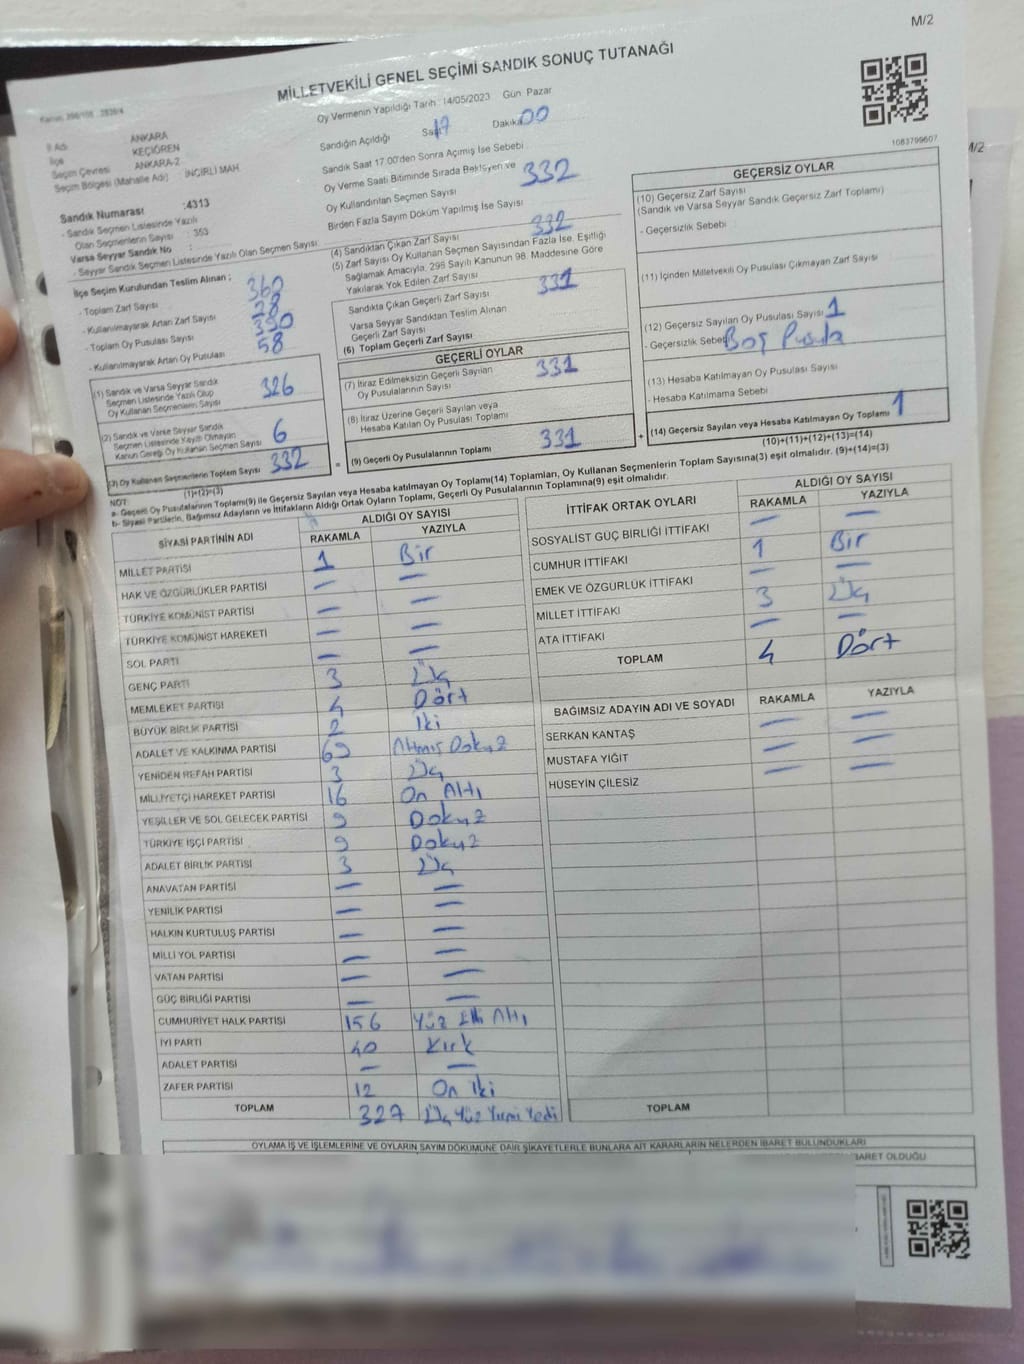 M/2
MİLLETVEKİLİ GENEL SEÇİMİ SANDIK SONUÇ TUTANAĞI
Oy Vermenin Yapıldığı Tarih : 14/05/2023 Gün: Pazar
1083799607
M/2
İl Adı ANKARA
İlçe KEÇİÖREN
Seçim Çevresi ANKARA-2
Seçim Bölgesi (Mahalle Adı) İNCİRLİ MAH
Sandık Numarası :4313
- Sandık Seçmen Listesinde Yazılı
Olan Seçmenlerin Sayısı : 353
Varsa Seyyar Sandık No :
- Seyyar Sandık Seçmen Listesinde Yazılı Olan Seçmen Sayısı:
İlçe Seçim Kurulundan Teslim Alınan ;
- Toplam Zarf Sayısı 360
- Kullanılmayarak Artan Zarf Sayısı 28
- Toplam Oy Pusulası Sayısı
- Kullanılmayarak Artan Oy Pusulası 58
(1) Sandık ve Varsa Seyyar Sandık
Seçmen Listesinde Yazılı Olup
Oy Kullanan Seçmenlerin Sayısı 326
(2) Sandık ve Varsa Seyyar Sandık
Seçmen Listesinde Kaydı Olmayan
Kanun Gereği Oy Kullanan Seçmen Sayısı 6
(3) Oy Kullanan Seçmenlerin Toplam Sayısı 332
(1)+(2)=(3)
Sandığın Açıldığı Saat 17 Dakika 00
Sandık Saat 17.00'den Sonra Açılmış İse Sebebi
Oy Verme Saati Bitiminde Sırada Bekleyen ve
Oy Kullandırılan Seçmen Sayısı 332
Birden Fazla Sayım Döküm Yapılmış İse Sayısı
(4) Sandıktan Çıkan Zarf Sayısı 332
(5) Zarf Sayısı Oy Kullanan Seçmen Sayısından Fazla İse, Eşitliği
Sağlamak Amacıyla, 298 Sayılı Kanunun 98. Maddesine Göre
Yakılarak Yok Edilen Zarf Sayısı
Sandıkta Çıkan Geçerli Zarf Sayısı 331
Varsa Seyyar Sandıktan Teslim Alınan
Geçerli Zarf Sayısı
(6) Toplam Geçerli Zarf Sayısı
GEÇERLİ OYLAR
(7) İtiraz Edilmeksizin Geçerli Sayılan
Oy Pusulalarının Sayısı 331
(8) İtiraz Üzerine Geçerli Sayılan veya
Hesaba Katılan Oy Pusulası Toplamı
= (9) Geçerli Oy Pusulalarının Toplamı 331 +
GEÇERSİZ OYLAR
(10) Geçersiz Zarf Sayısı
(Sandık ve Varsa Seyyar Sandık Geçersiz Zarf Toplamı)
- Geçersizlik Sebebi :
(11) İçinden Milletvekili Oy Pusulası Çıkmayan Zarf Sayısı
(12) Geçersiz Sayılan Oy Pusulası Sayısı 1
- Geçersizlik Sebebi Boş Pusula
(13) Hesaba Katılmayan Oy Pusulası Sayısı
- Hesaba Katılmama Sebebi
(14) Geçersiz Sayılan veya Hesaba Katılmayan Oy Toplamı 1
(10)+(11)+(12)+(13)=(14)
NOT:
a- Geçerli Oy Pusulalarının Toplamı(9) ile Geçersiz Sayılan veya Hesaba katılmayan Oy Toplamı(14) Toplamları, Oy Kullanan Seçmenlerin Toplam Sayısına(3) eşit olmalıdır. (9)+(14)=(3)
b- Siyasi Partilerin, Bağımsız Adayların ve İttifakların Aldığı Ortak Oyların Toplamı, Geçerli Oy Pusulalarının Toplamına(9) eşit olmalıdır.
SİYASİ PARTİNİN ADI ALDIĞI OY SAYISI
RAKAMLA YAZIYLA
MİLLET PARTİSİ 1 Bir
HAK VE ÖZGÜRLÜKLER PARTİSİ — —
TÜRKİYE KOMÜNİST PARTİSİ — —
TÜRKİYE KOMÜNİST HAREKETİ — —
SOL PARTİ — —
GENÇ PARTİ 3 Üç
MEMLEKET PARTİSİ 4 Dört
BÜYÜK BİRLİK PARTİSİ 2 İki
ADALET VE KALKINMA PARTİSİ 69 Altmış Dokuz
YENİDEN REFAH PARTİSİ 3 Üç
MİLLİYETÇİ HAREKET PARTİSİ 16 On Altı
YEŞİLLER VE SOL GELECEK PARTİSİ 9 Dokuz
TÜRKİYE İŞÇİ PARTİSİ 9 Dokuz
ADALET BİRLİK PARTİSİ 3 Üç
ANAVATAN PARTİSİ — —
YENİLİK PARTİSİ — —
HALKIN KURTULUŞ PARTİSİ — —
MİLLİ YOL PARTİSİ — —
VATAN PARTİSİ — —
GÜÇ BİRLİĞİ PARTİSİ — —
CUMHURİYET HALK PARTİSİ 156 Yüz Elli Altı
İYİ PARTİ 40 Kırk
ADALET PARTİSİ — —
ZAFER PARTİSİ 12 On iki
TOPLAM 327 Üç Yüz Yirmi Yedi
İTTİFAK ORTAK OYLARI ALDIĞI OY SAYISI
RAKAMLA YAZIYLA
SOSYALİST GÜÇ BİRLİĞİ İTTİFAKI — —
CUMHUR İTTİFAKI 1 Bir
EMEK VE ÖZGÜRLÜK İTTİFAKI — —
MİLLET İTTİFAKI 3 Üç
ATA İTTİFAKI — —
TOPLAM 4 Dört
BAĞIMSIZ ADAYIN ADI VE SOYADI RAKAMLA YAZIYLA
SERKAN KANTAŞ — —
MUSTAFA YİĞİT — —
HÜSEYİN ÇİLESİZ — —
TOPLAM
OYLAMA İŞ VE İŞLEMLERİNE VE OYLARIN SAYIM DÖKÜMÜNE DAİR ŞİKAYETLERLE BUNLARA AİT KARARLARIN NELERDEN İBARET BULUNDUKLARI
İBARET OLDUĞU